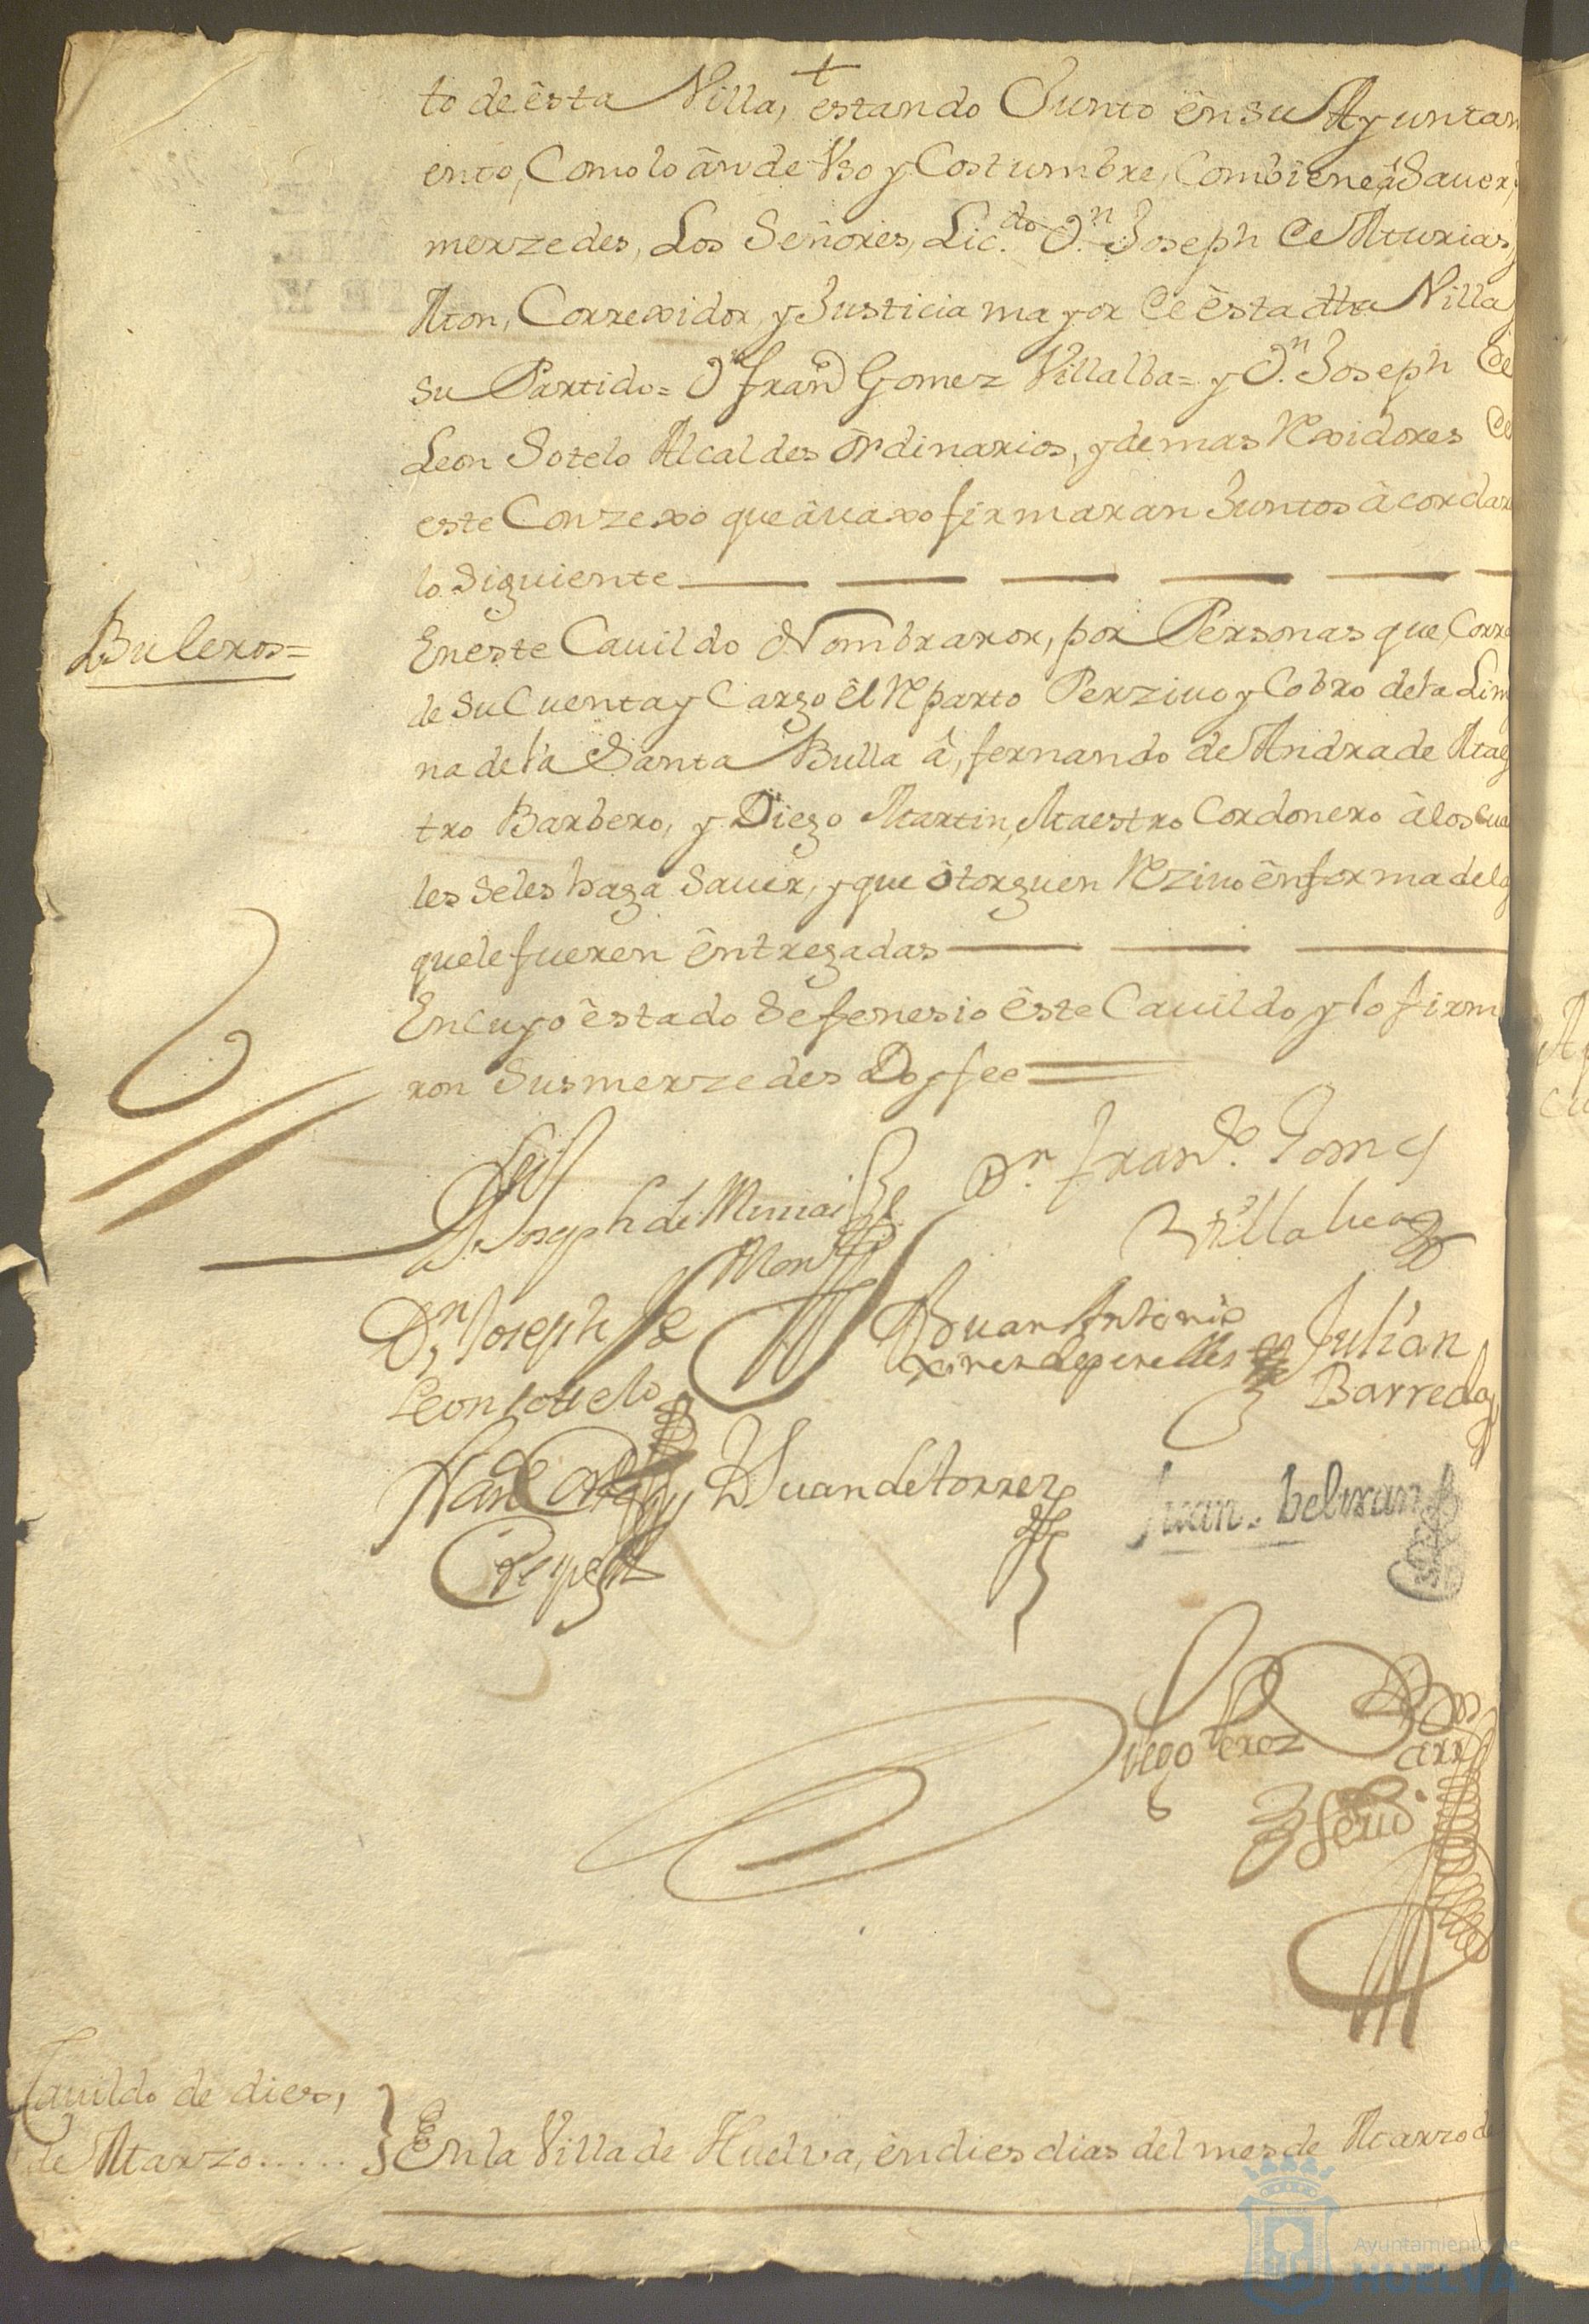 ✝
to de êsta Villa, estando Junto ên su Ayuntam
ento, Como lo ân de Vso y Costumbre, Combiene â Sauer,
merzedes, Los Señores, Lic.do D.n Joseph de Murias,
Mon, Correxidor, y Justicia mayor de êsta dha Villa y
su Partido= Dn Franco Gomez Villalba= y D.n Joseph de
Leon Sotelo Alcaldes Ordinarios, y demas Rexidores de
este Conzexo que âuaxo firmaran Juntos âcordar
lo Siguiente
Buleros=
En este Cauildo Nombraron, por Personas que, Corra
de Su Cuenta y Cargo êl Reparto Perziuo y Cobro de la Lim
na de la Santa Bulla â, fernando de Andrade Maes
tro Barbero, y Diego Martin, Maestro Cordonero â los cua
les Se les haga Sauer, y que ôtorguen Reziuo ên forma de la
que le fueren êntregadas
En cuyo êstado Se fenesio êste Cauildo y lo firm
ron Sus merzedes Doy fee
Lic
D. Joseph de Murias
Mon
Dn Frano. Gomes
Villalua
Dn Joseph de
Leon sotelo
Juan Antonio
Julian
Barreda
Juan de torres
Juan. beltran
Diego Perez
Cauildo de dies,
de Marzo.....
En la Villa de Huelva, ên dies dias del mes de Marzo de
Ayuntamiento de
HUELVA